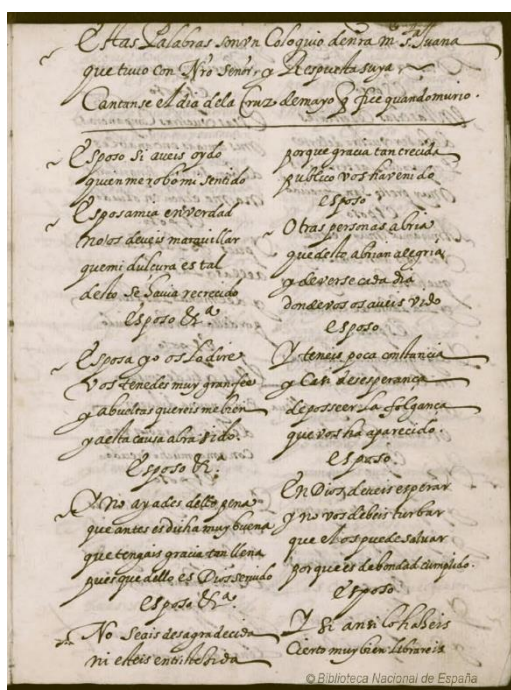 Estas Palabras son vn Coloquio de nra me Sta Juana
que tuuo con Nro Señor, y Respuesta suya
Cantanse el dia dela Cruz de mayo q fue quando murio.
Esposo si aueis oydo
quien me robó mi sentido
Esposa mia en verdad
no os deueis marauillar
que mi dulçura es tal
desto se hauia recrecido
esposo &ª
Esposa yo os lo dire
vos tenedes muy gran fee
y abueltas quereis me bien
y desta causa abra sido.
esposo &ª
A No ayades dello pena
que antes es dicha muy buena
que tengais gracia tan llena
pues que dello es Dios seruido
esposo &ª
No seais desagradecida
ni esteis entristezida
porque gracia tan crecida
publico vos ha venido
esposo
Otras personas abria
que desto abrian alegria
y de verse cada dia
donde vos os aueis vido
esposo
Y teneis poca constancia
y Casi desesperança
de posseer la folgança
que vos ha aparecido.
esposo
En Dios deueis esperar
y no vos debeis turbar
que el os puede saluar
porque es de bondad cumplido.
esposo
Y si ansi lo hazeis
Cierto muy bien librareis
© Biblioteca Nacional de España